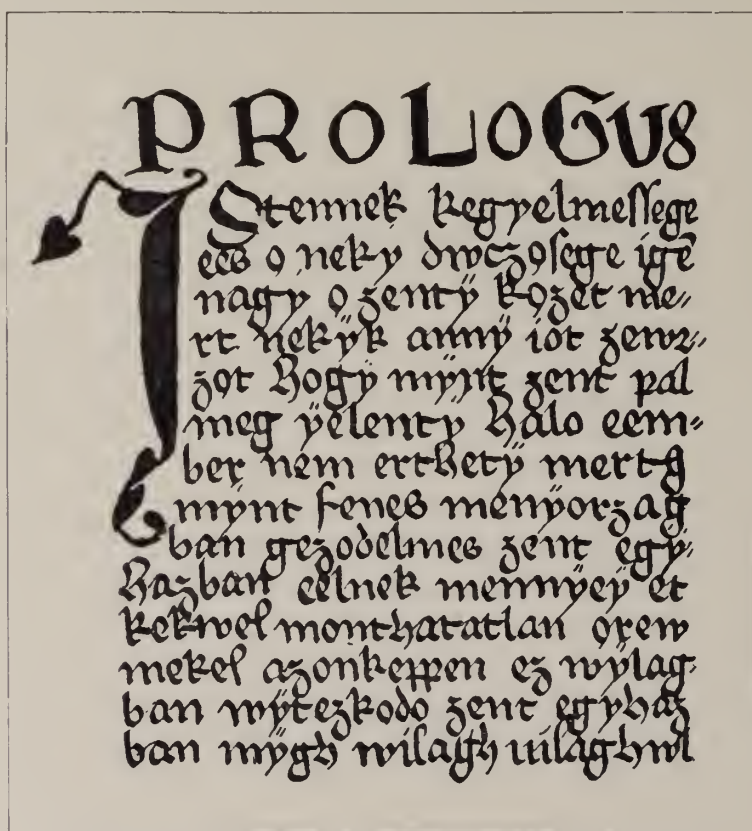 PROLOGUS
IStennek kegyelmeſſege
ees o neky dwczoſege igē
nagy o zentÿ kozet me„
rt nekÿk annÿ iot zewr„
zot hogy mÿnt zent pal
meg ÿelentÿ halo eem„
ber nem erthetÿ mert
mÿnt fenes menÿorzag
ban gezodelmes zent egÿ„
hazban eelnek mennÿeÿ et
kekwel monthatatlan orew
mekel azonkeppen ez wÿlag„
ban wÿtezkodo zent egyhaz
ban mÿgh wilagh uilaghwl